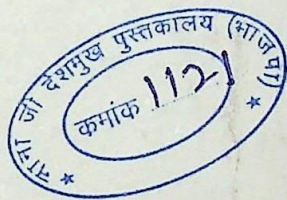 नाना जी देशमुख पुस्तकालय (भाजपा)
क्रमांक 1121